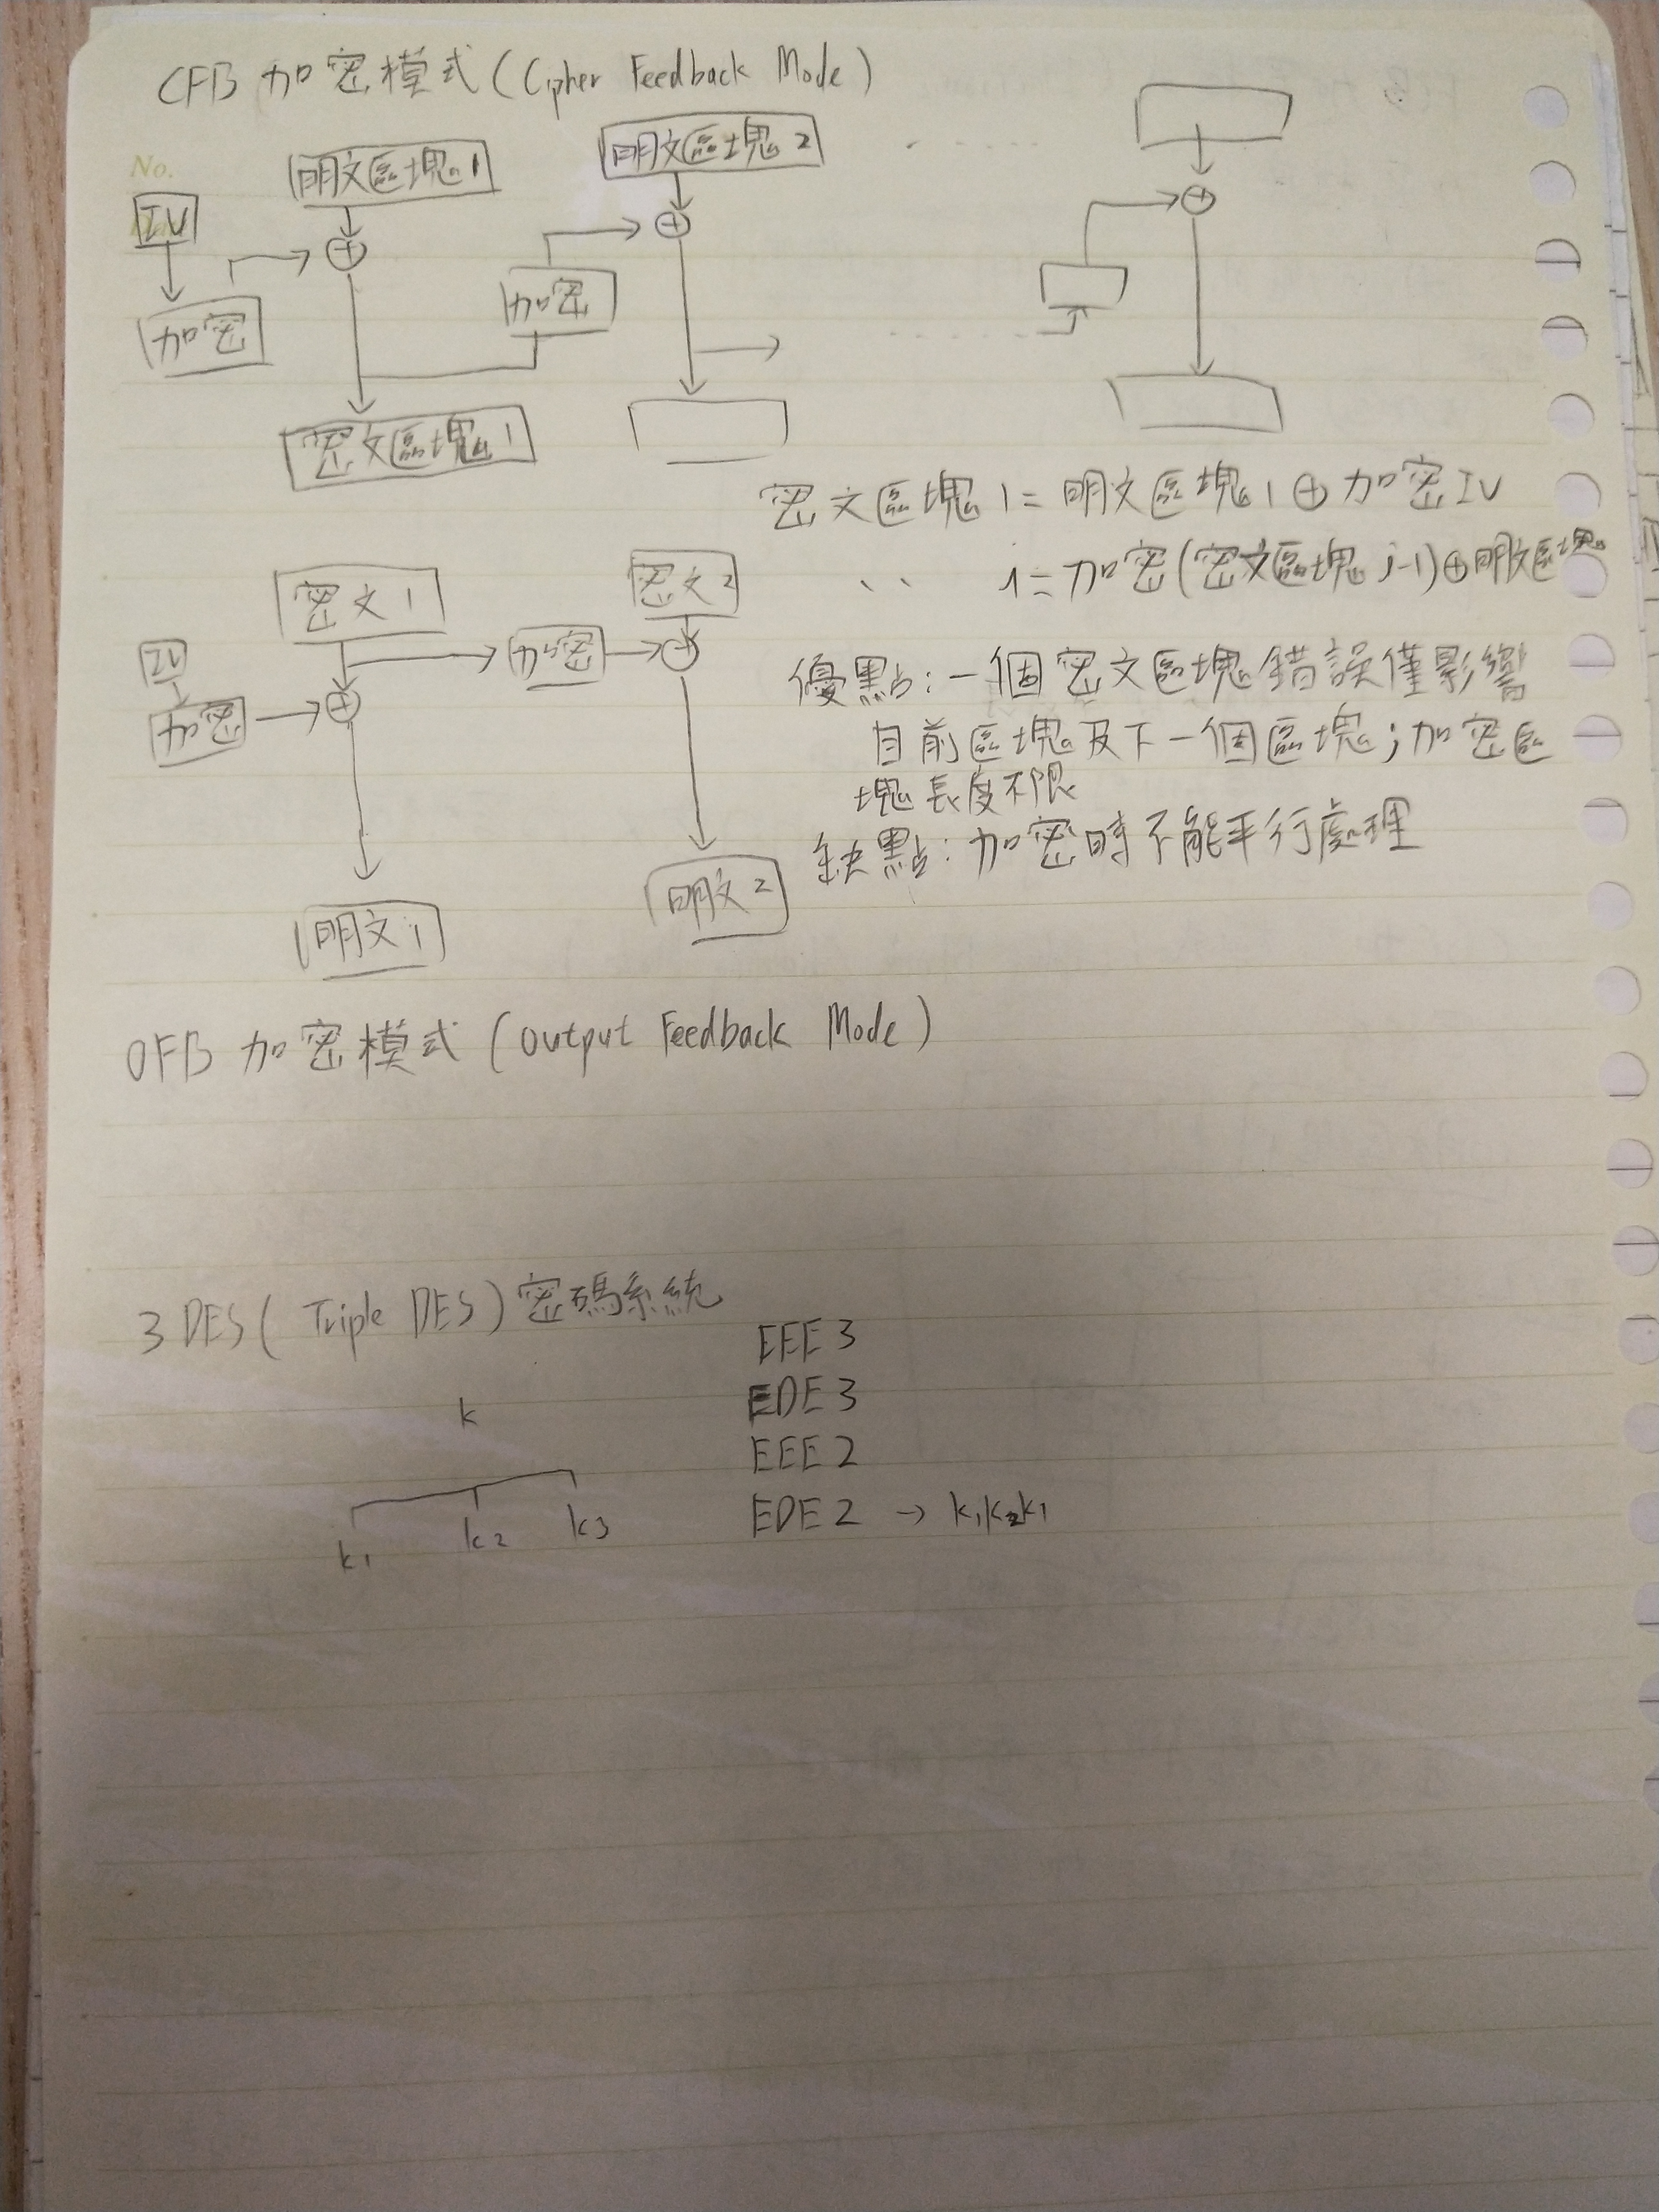 CFB 加密模式(Cipher Feedback Mode)
No.
IV
明文區塊1
明文區塊2
加密
加密
密文區塊1
密文區塊1=明文區塊1⊕加密IV
〃 i=加密(密文區塊i-1)⊕明文區塊
密文1
密文2
IV
加密
加密
優點:一個密文區塊錯誤僅影響
目前區塊及下一個區塊;加密區
塊長度不限
缺點:加密時不能平行處理
明文1
明文2
OFB 加密模式(Output Feedback Mode)
3DES(Triple DES)密碼系統
EEE3
EDE3
EEE2
EDE2 → k1k2k1
k
k1 k2 k3